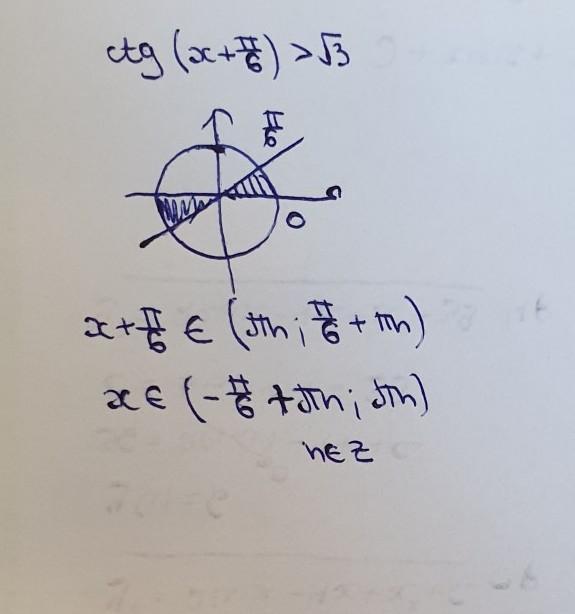 ctg (x+π/6) > √3
π/6
0
x+π/6 ∈ (πn; π/6 + πn)
x ∈ (-π/6 + πn; πn)
n∈Z